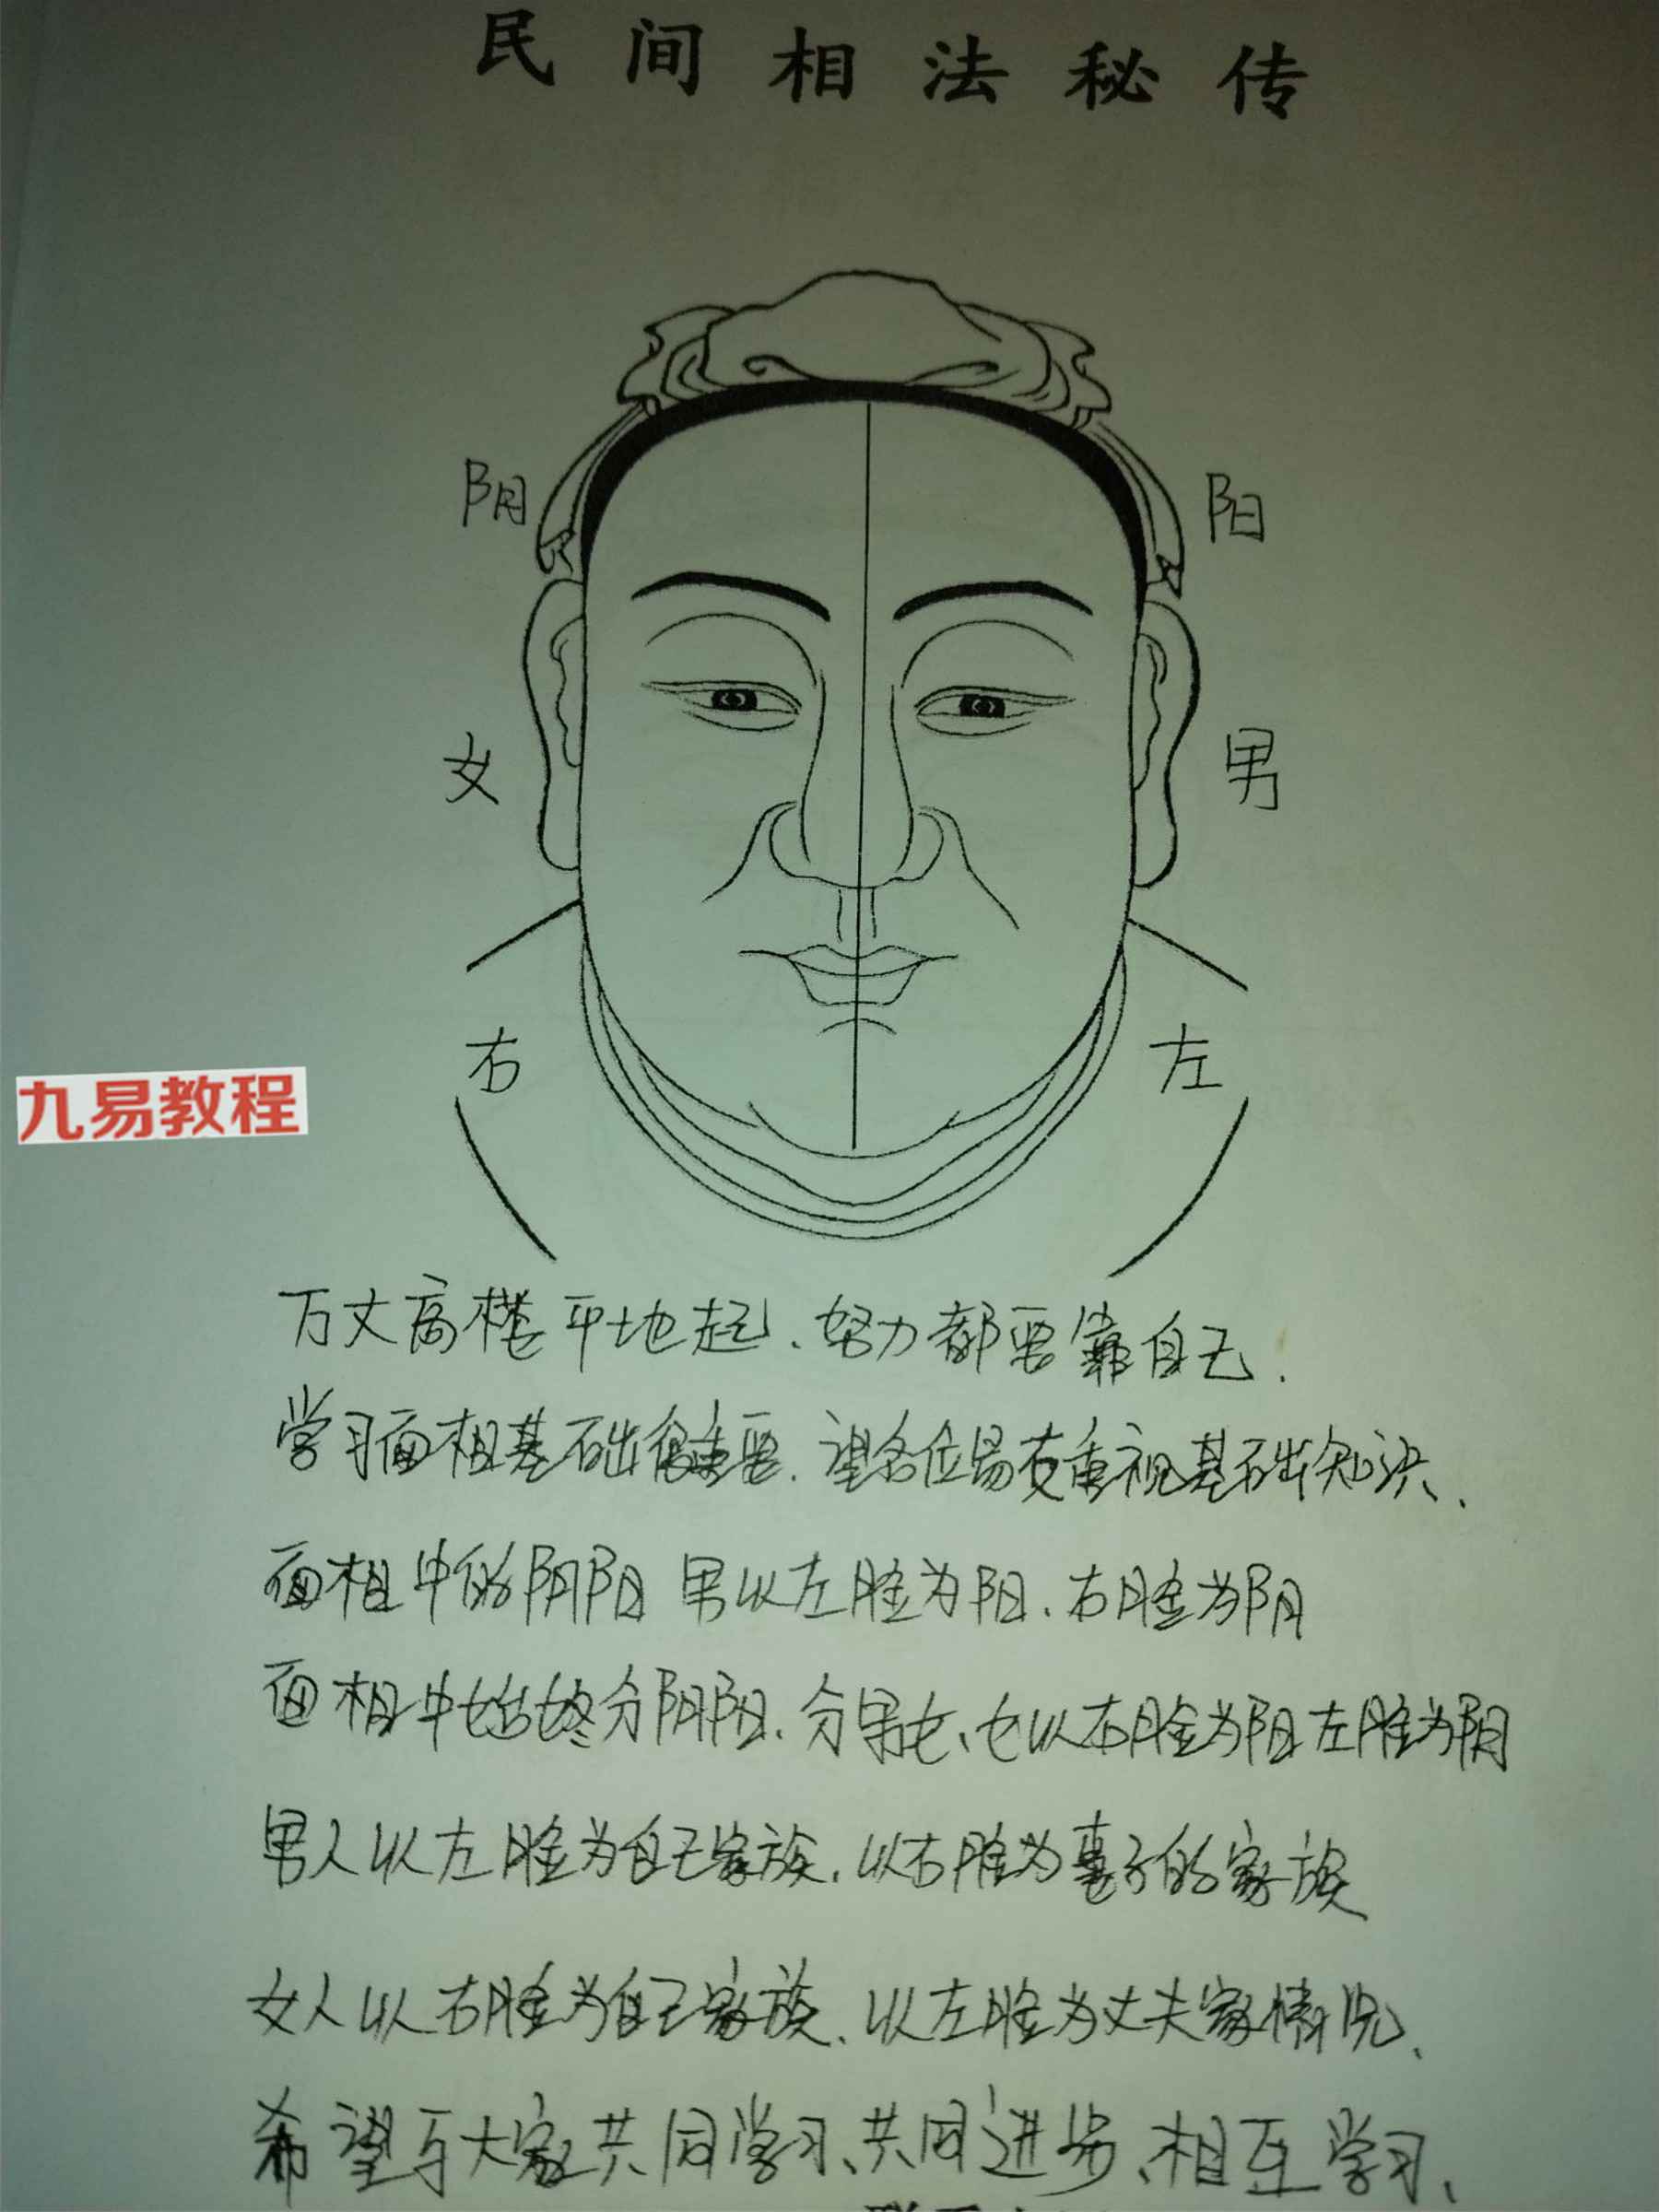 民间相法秘传
阴
阳
女
男
右
左
九易教程
万丈高楼平地起、努力都要靠自己.
学习面相基础很重要、望各位易友重视基础知识、
面相中的阴阳 男以左脸为阳、右脸为阴
面相中始终分阴阳、分男女、女以右脸为阳左脸为阴
男人以左脸为自己家族、以右脸为妻子的家族
女人以右脸为自己家族、以左脸为丈夫家情况、
希望与大家共同学习、共同进步、相互学习、